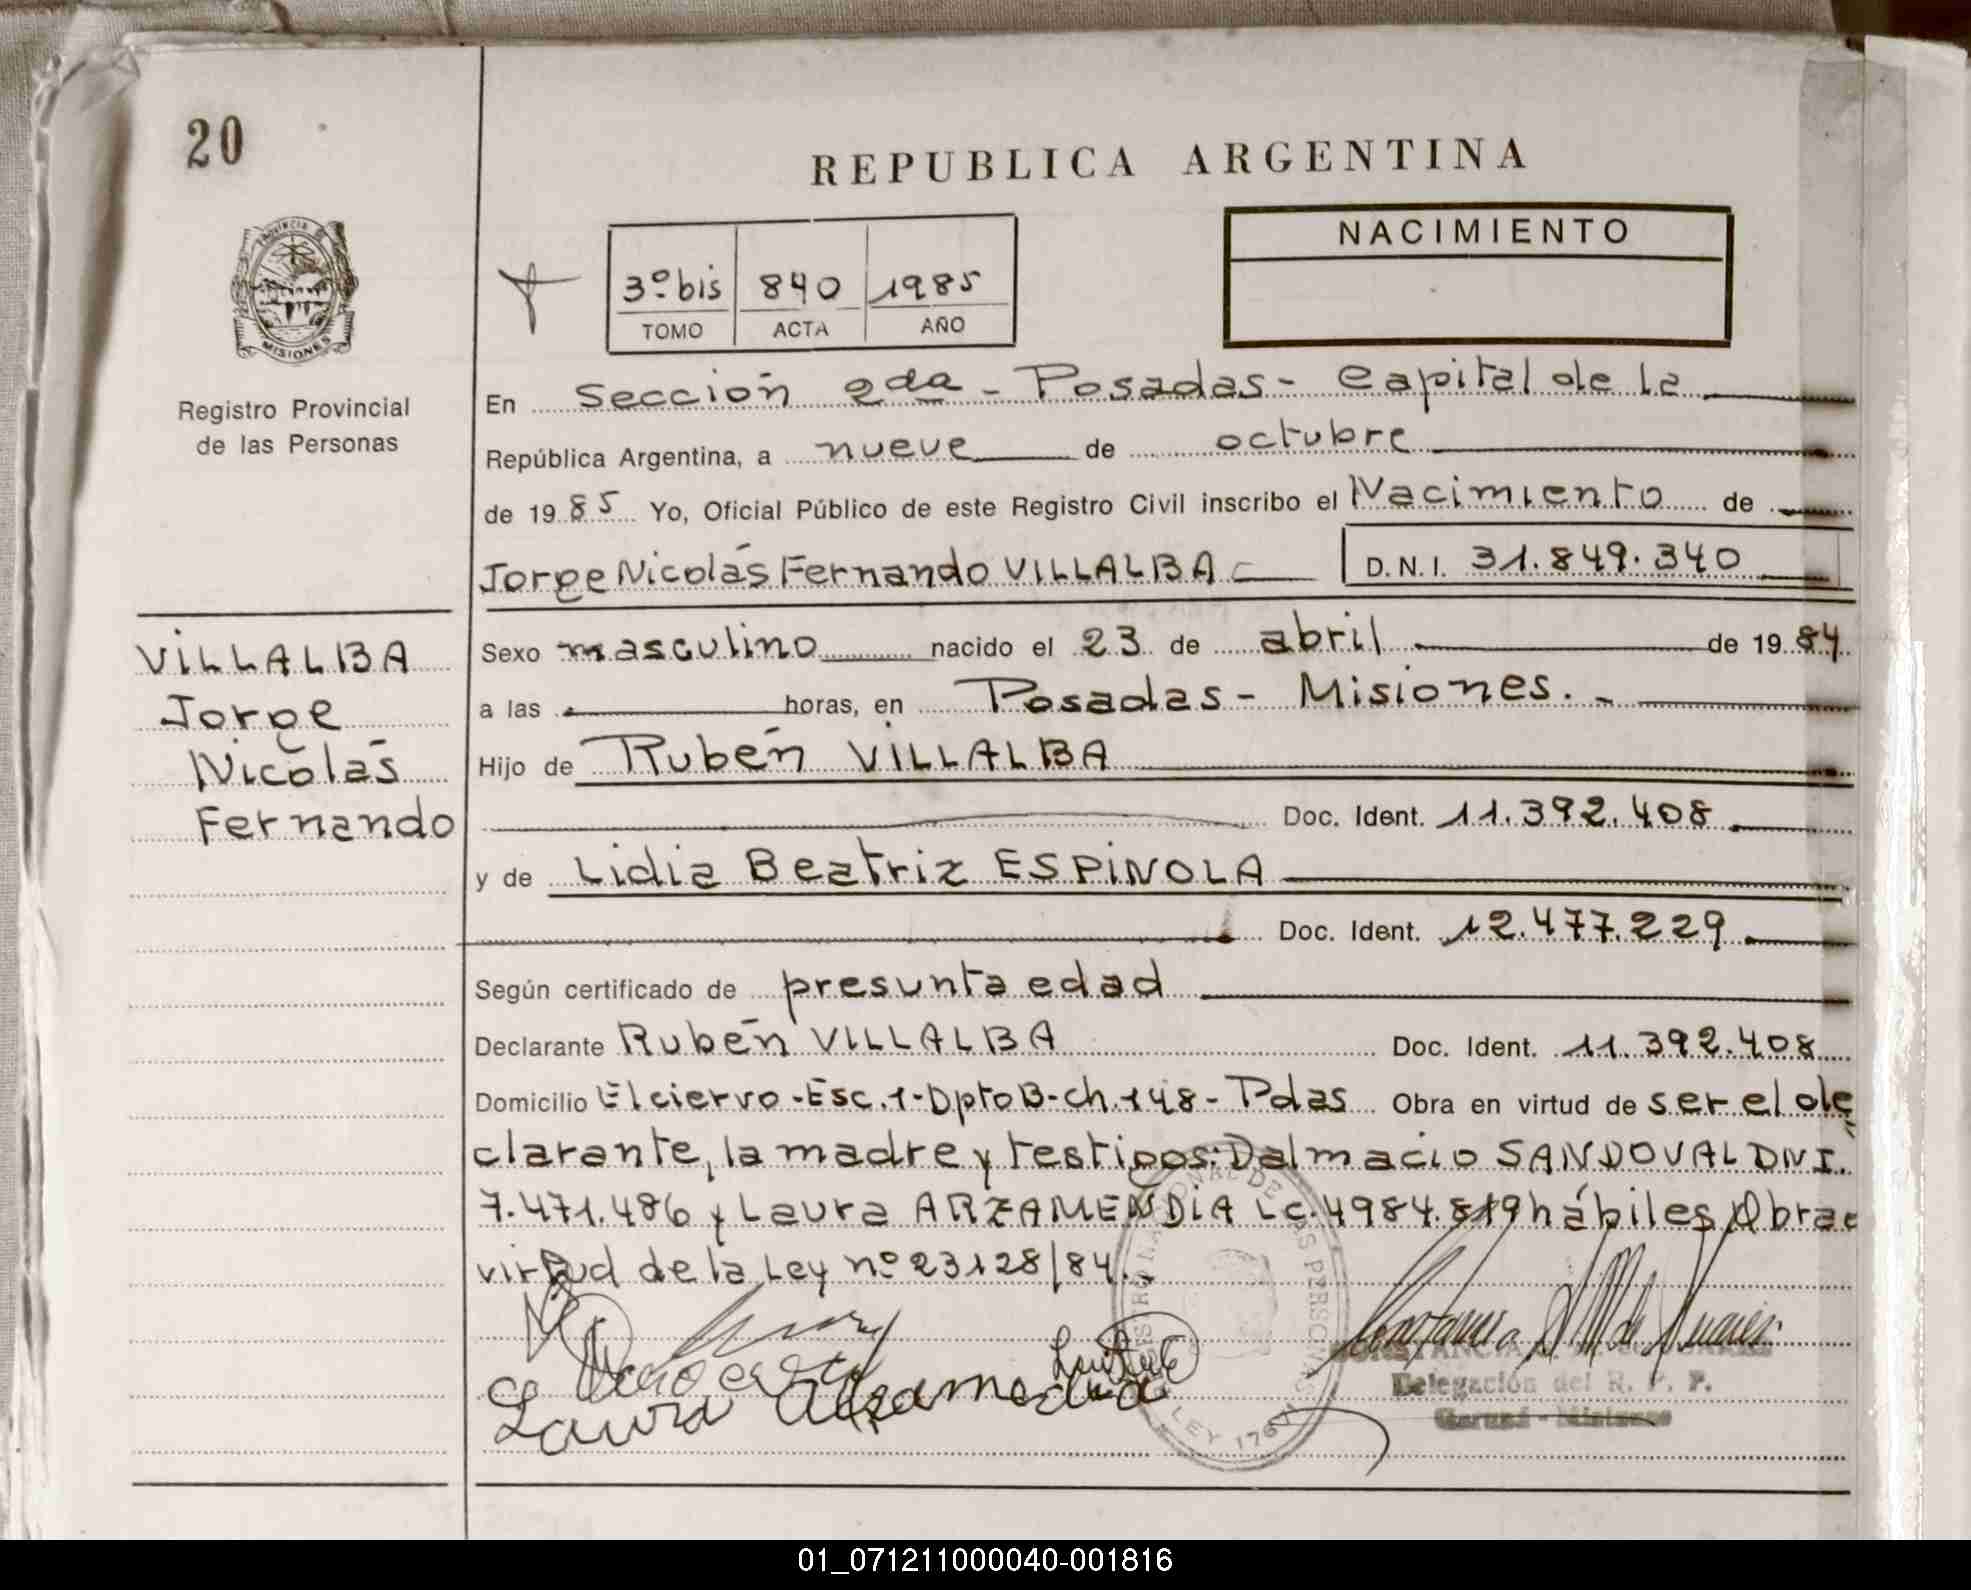 20
REPUBLICA ARGENTINA
NACIMIENTO
3º bis 840 1985
TOMO ACTA AÑO
PROVINCIA DE
MISIONES
Registro Provincial
de las Personas
En Sección 2da - Posadas - Capital de la
República Argentina, a nueve de octubre
de 1985 Yo, Oficial Público de este Registro Civil inscribo el Nacimiento de
Jorge Nicolás Fernando VILLALBA D.N.I. 31.849.340
VILLALBA
Jorge
Nicolás
Fernando
Sexo masculino nacido el 23 de abril de 1984
a las horas, en Posadas - Misiones.
Hijo de Rubén VILLALBA
Doc. Ident. 11.392.408
y de Lidia Beatriz ESPINOLA
Doc. Ident. 12.477.229
Según certificado de presunta edad
Declarante Rubén VILLALBA Doc. Ident. 11.392.408
Domicilio El ciervo-Esc.1-Dpto B-ch.148-Pdas Obra en virtud de ser el de
clarante, la madre y testigos: Dalmacio SANDOVAL DNI.
7.471.486 y Laura ARZAMENDIA LC.4984.819 hábiles Obra e
virtud de la Ley nº 23128/84.
Laura Arzamendia
Delegación del R. P. P.
LEY 17671
01_071211000040-001816